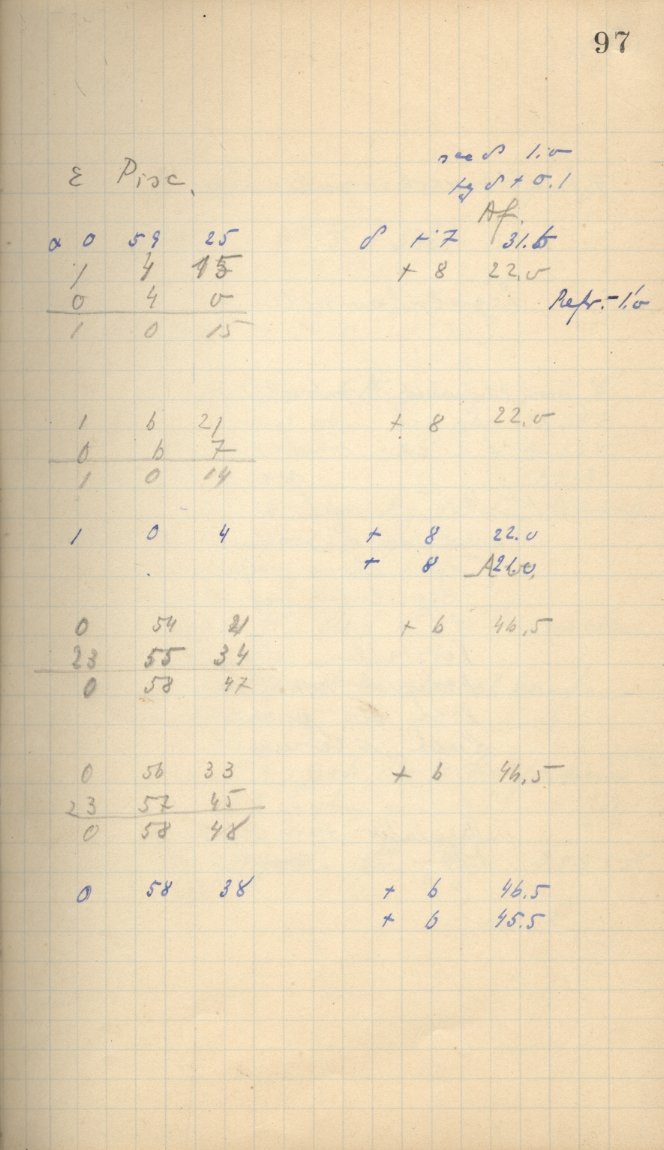 97
sec δ 1.0
ε Pisc. tg δ + 0.1
Af.
α 0 59 25 δ + 7 31.5
1 4 15 + 8 22.0
0 4 0 Refr. - 1.'0
1 0 15
1 6 21 + 8 22.0
0 6 7
1 0 14
1 0 4 + 8 22.0
+ 8 21.0
0 54 21 + 6 46.5
23 55 34
0 58 47
0 56 33 + 6 46.5
23 57 45
0 58 48
0 58 38 + 6 46.5
+ 6 45.5